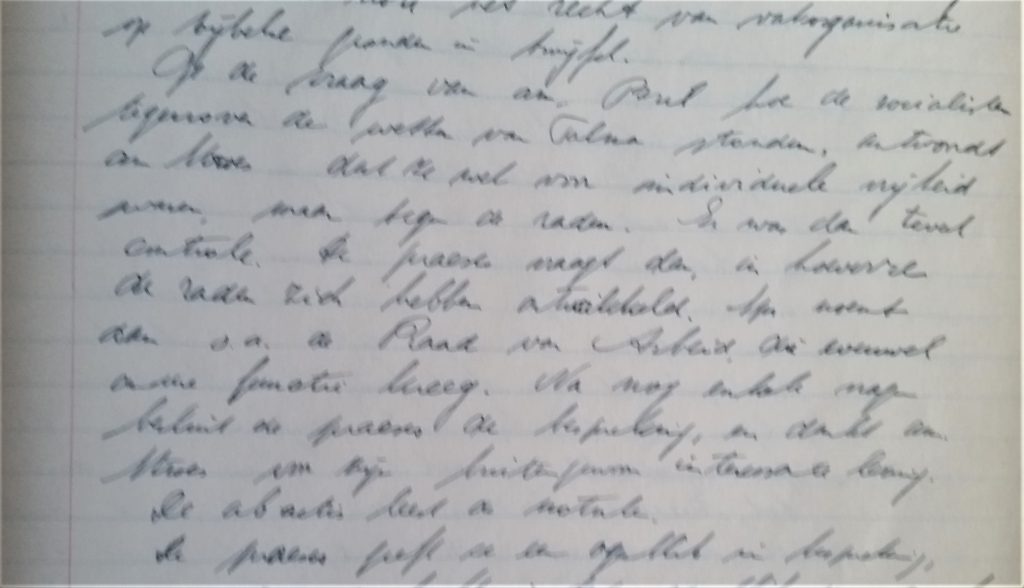 het recht van vakorganisatie
op bijbelse gronden in twijfel.
Op de vraag van am. Poul hoe de socialisten
tegenover de wetten van Talma stonden, antwoordt
am Stroes dat ze wel voor individuele vrijheid
waren, maar tegen de raden. Er was dan teveel
controle. De praeses vraagt dan, in hoeverre
de raden zich hebben ontwikkeld. Men noemt
dan o.a. de Raad van Arbeid, die evenwel
andere functie kreeg. Na nog enkele vragen
besluit de praeses de bespreking, en dankt am.
Stroes voor zijn buitengewoon interessante lezing.
De abactis leest de notulen.
De praeses geeft ze een ogenblik in bespreking,